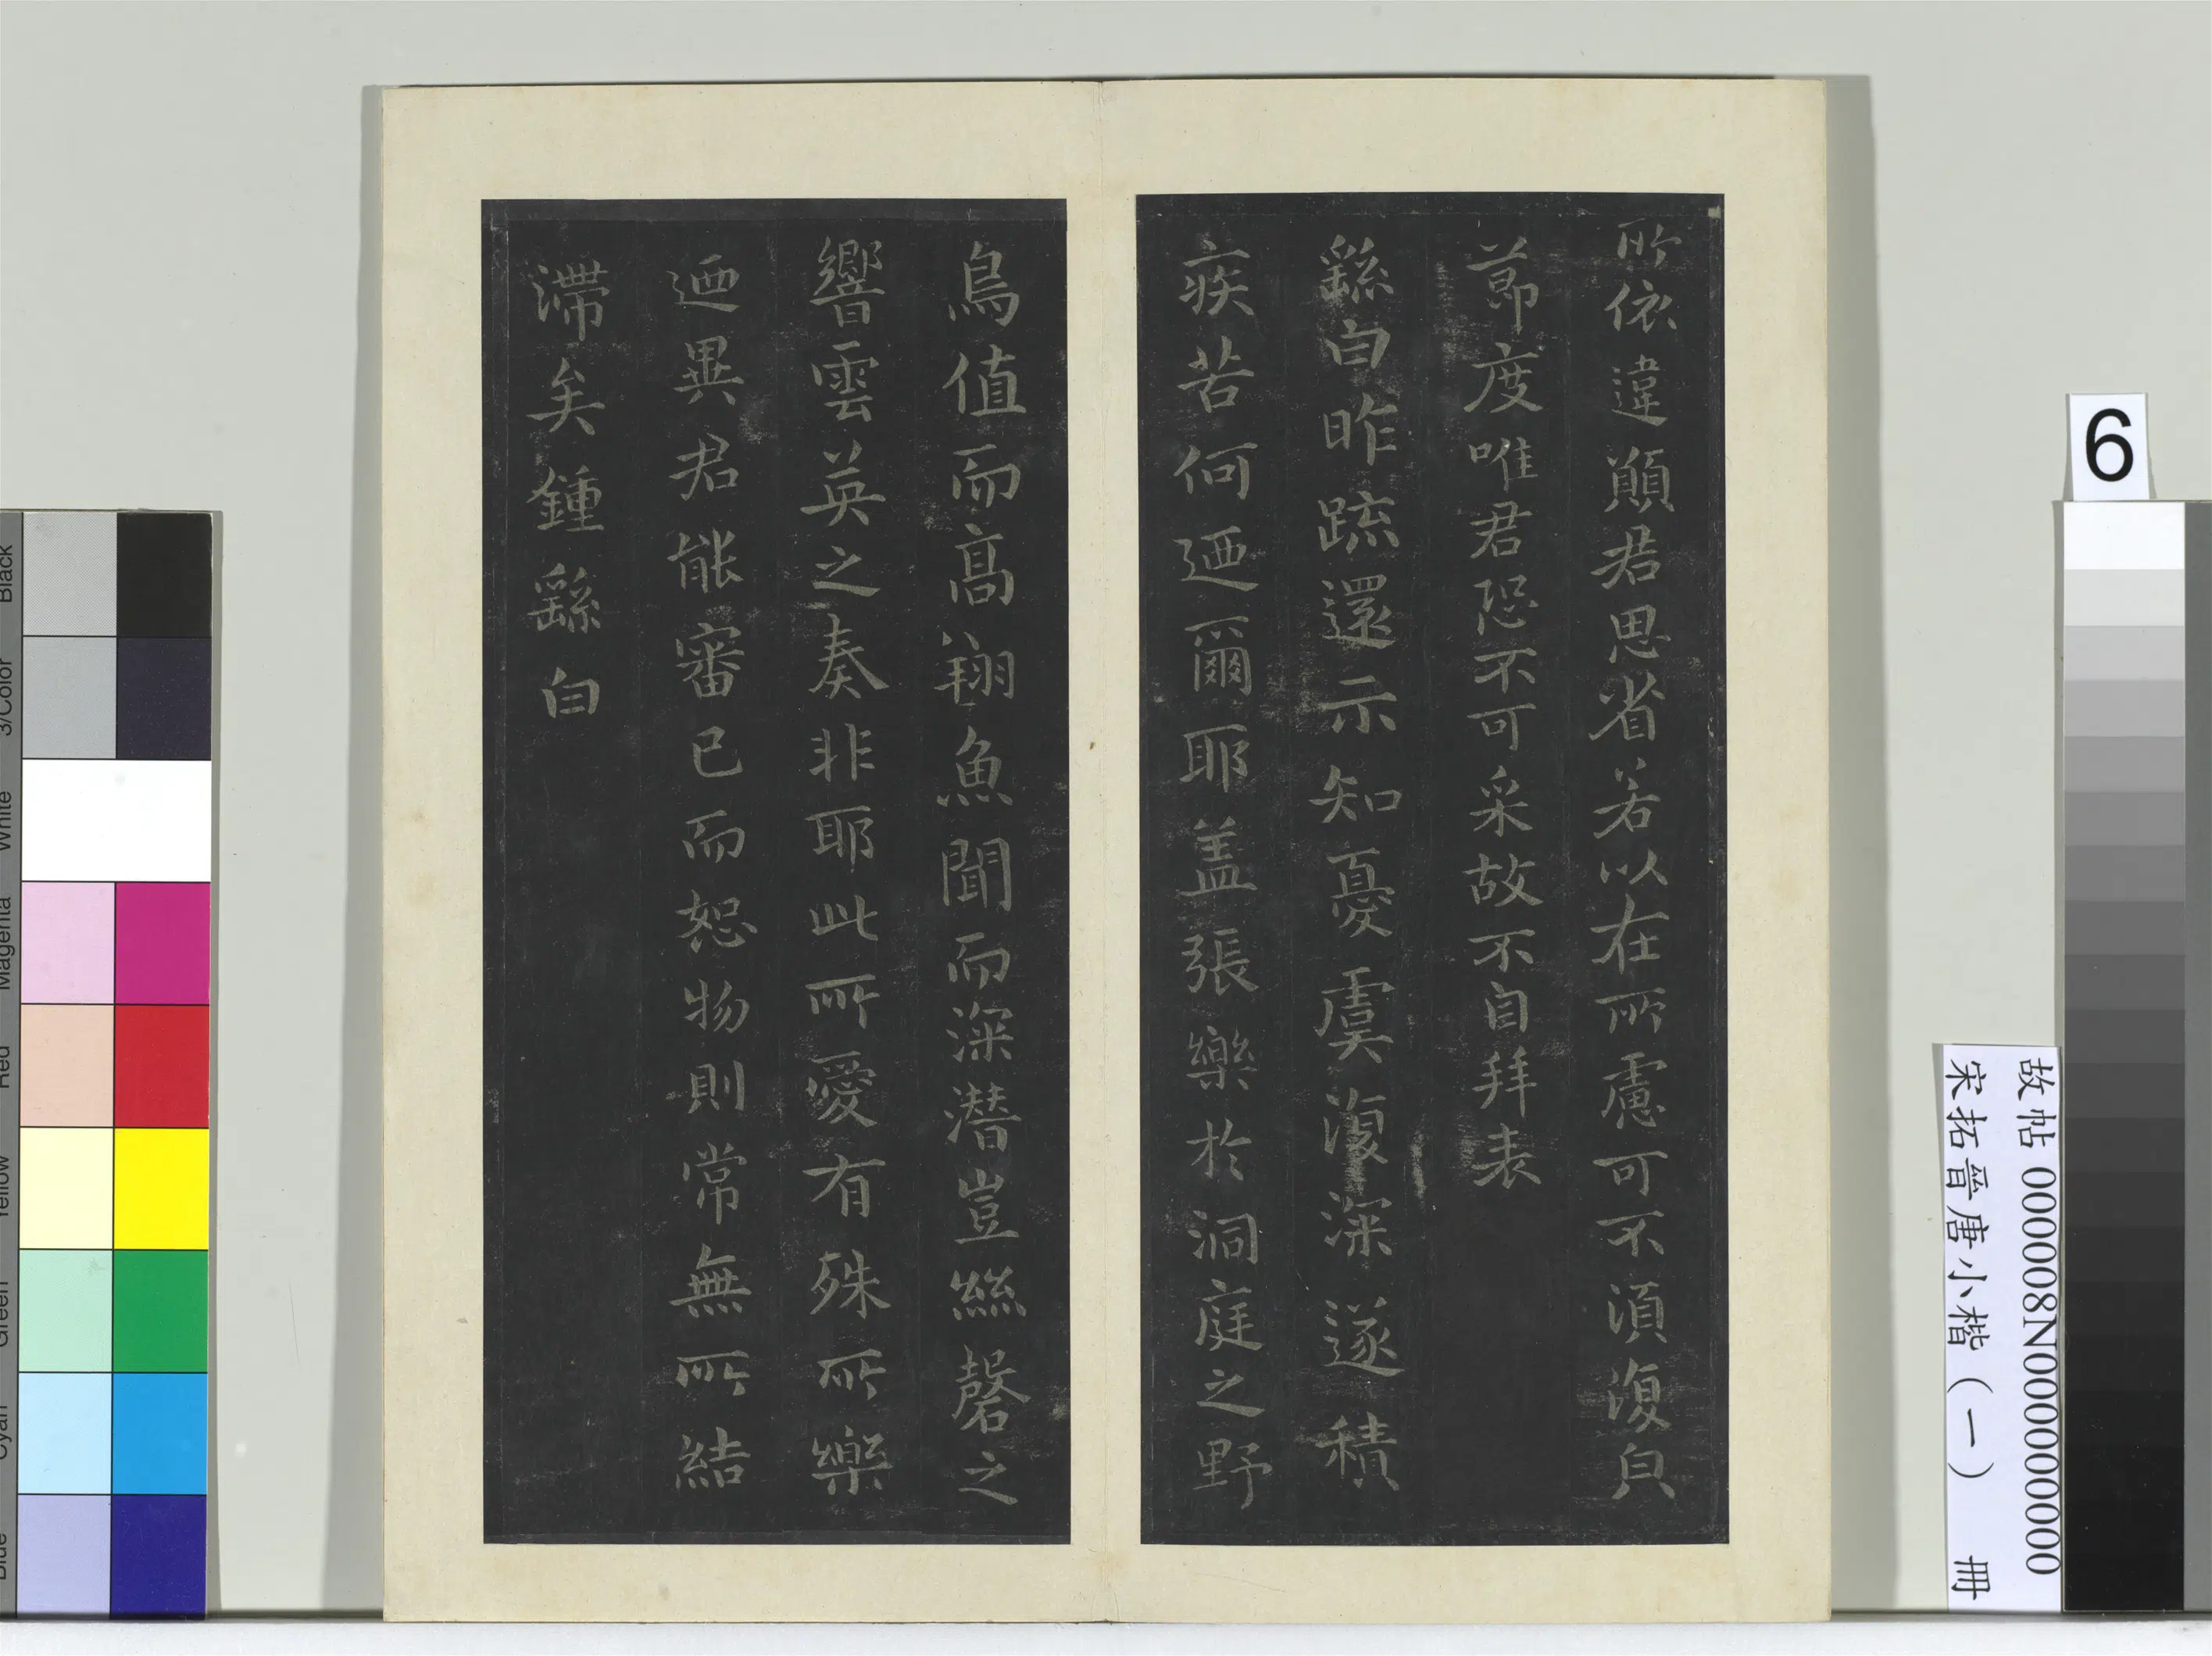 所依違願君思省若以在所慮可不須復白
節度唯君恐不可采故不自拜表
繇白昨疏還示知憂虞復深遂積
疾苦何迺爾耶蓋張樂於洞庭之野
鳥值而高翔魚聞而深潛豈絲磬之
響雲英之奏非耶此所愛有殊所樂
迺異君能審己而恕物則常無所結
滯矣鍾繇白
6
故帖 000008N000000000
宋拓晉唐小楷（一） 冊
Black
3/Color
White
Magenta
Red
Yellow
Green
Cyan
Blue